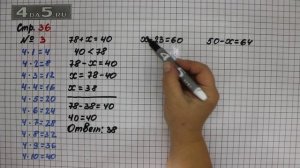 4DA5.RU
Стр. 36
№ 3
4 · 1 = 4
4 · 2 = 8
4 · 3 = 12
4 · 4 = 16
4 · 5 = 20
4 · 6 = 24
4 · 7 = 28
4 · 8 = 32
4 · 9 = 36
4 · 10 = 40
78+x=40
40<78
78-x=40
x=78-40
x=38
78-38=40
40=40
Ответ: 38
x-23=60
50-x=64